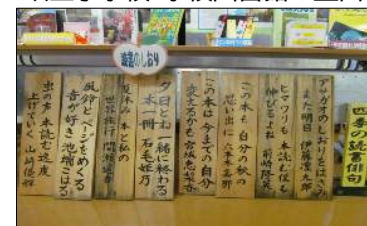 読書のしおり
四季の読書俳句
アサガオのしおりをはさみ
また明日 伊藤凜太郎
ヒマワリも 本読む僕も
伸びるよね 前崎隆英
この本も 自分の秋の
思い出に 六本木
この本は 今までの自分
変えるかも 宮坂
夕日とね 一緒に終わる
本一冊 石毛姫乃
夏休み 本と私の
世界旅行 間瀬遥香
風鈴と ページをめくる
音が好き 池端こはる
虫の声 本読む速度
上げていく 山崎